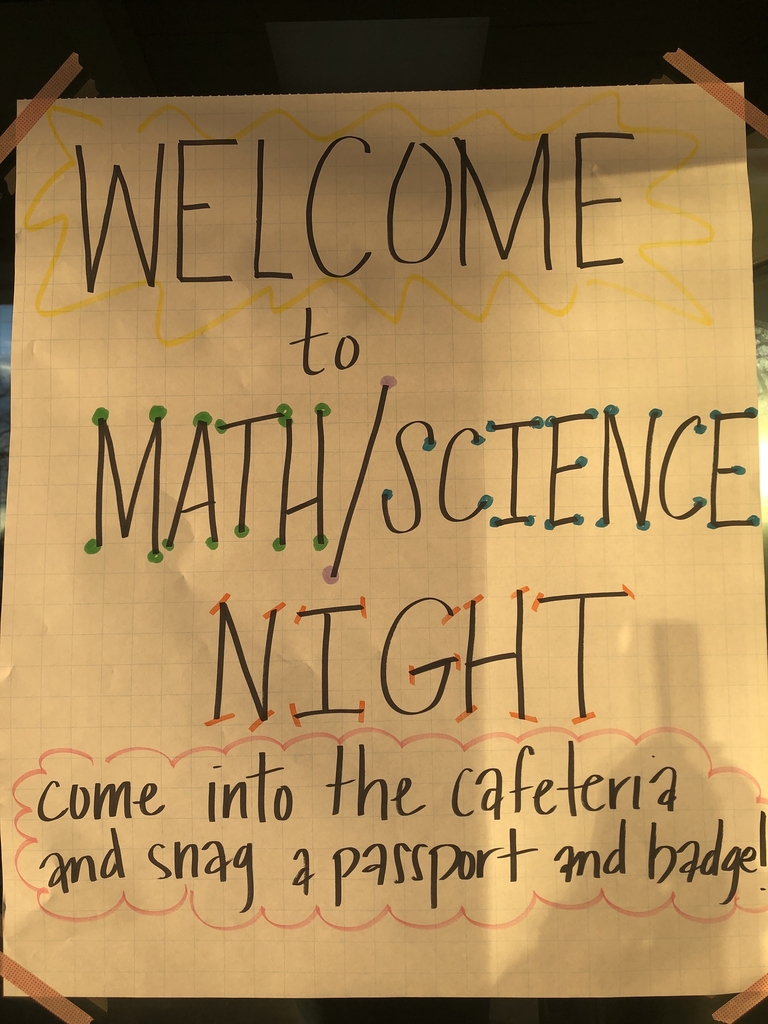 WELCOME
to
MATH/SCIENCE
NIGHT
come into the cafeteria
and snag a passport and badge!